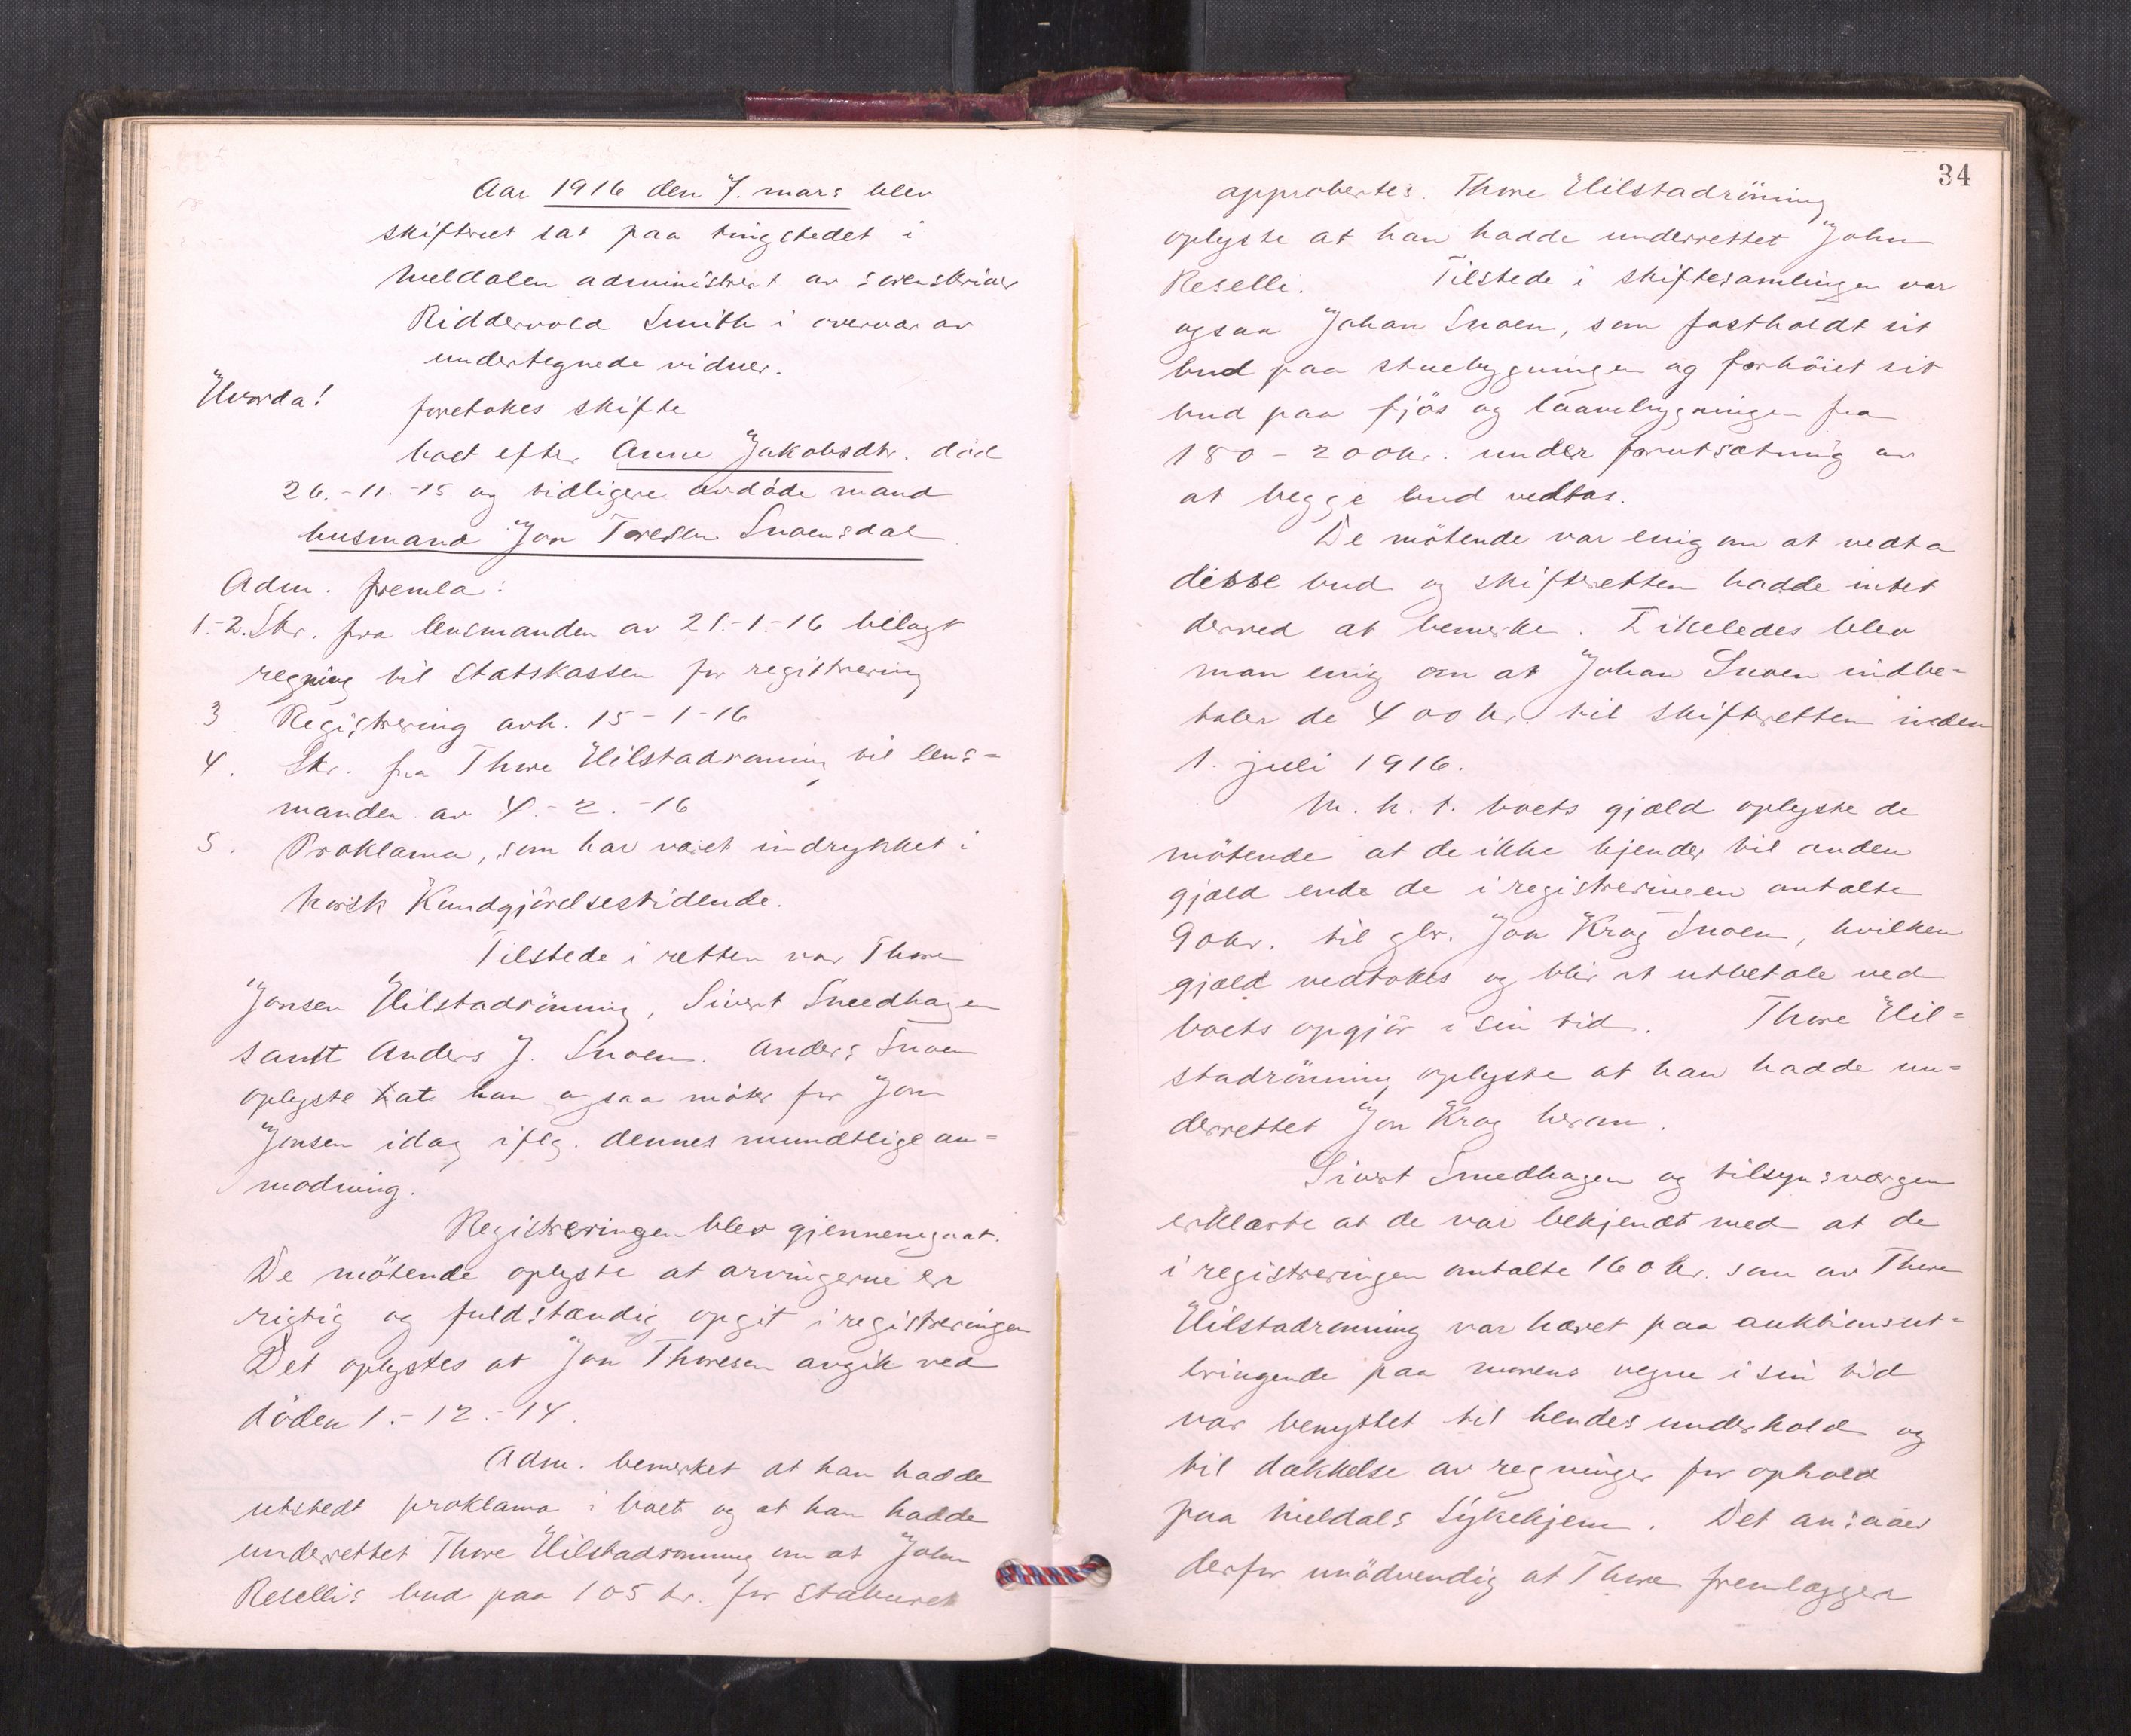 Aar 1916 den 7. mars blev
skifteret sat paa tingstedet i
Meldalen administrert av sorenskriver
Riddervold Smith i overvær av
undertegnede vidner.
Hvorda!
foretokes skifte
boet efter Anne Jakobsdtr. död
26.-11.-15 og tidligere avdöde mand
husmand Jon Toresen Snoensdal
Adm. fremla:
1.-2. Skr. fra lensmanden av 21.-1.-16 bilagt
regning til Statskassen for registrering
3 Registrering avh. 15-1-16
4. Skr. fra Thore Hilstadrönning til lens=
manden av 4.-2.-16
5. Proklama, som har været indrykket i
Norsk Kundgjörelsestidende.
Tilstede i retten var Thore
Jonsen Hilstadrönning, Sivert Smedhagen
samt Anders J. Snoen. Anders Snoen
oplyste at han ogsaa möter for Jon
Jonsen idag iflg. dennes mundtlige an=
modning.
Registreringen blev gjennemgaat.
De mötende oplyste at arvingerne er
rigtig og fuldstændig opgit i registreringen
Det oplystes at Jon Thoresen avgik ved
döden 1.-12.-14.
Adm. bemerket at han hadde
utstedt proklama i boet og at han hadde
underrettet Thore Hilstadrönning om at John
Resellis bud paa 105 kr. for staburet
34
approbertes. Thore Hilstadrönning
oplyste at han hadde underrettet John
Reselli. Tilstede i skiftesamlingen var
ogsaa Johan Snoen, som fastholdt sit
bud paa stuebygningen og forhöiet sit
bud paa fjös og laavebygningen fra
180 - 200 kr. under forutsætning av
at begge bud vedtas.
De mötende var enig om at vedta
disse bud og skifteretten hadde intet
derved at bemerke. Likeledes blev
man enig om at Johan Snoen indbe=
taler de 400 kr. til skifteretten inden
1. juli 1916.
M. h. t. boets gjæld oplyste de
mötende at de ikke kjender til anden
gjæld ende de i registreringen antalte
90 kr. til gbr. Jon Krog Snoen, hvilken
gjæld vedtokes og blir at utbetale ved
boets opgjör i sin tid. Thore Hil=
stadrönning oplyste at han hadde un=
derrettet Jon Krog herom.
Sivert Smedhagen og tilsynsværgen
erklærte at de var bekjendt med at de
i registreringen omtalte 160 kr. som av Thore
Hilstadrönning var hævet paa auktionsut=
bringende paa morens vegne i sin tid
var benyttet til hendes underhold og
til dækkelse av regninger for ophold
paa Meldals Sykehjem. Det ansaaes
derfor unödvendig at Thore fremlægger